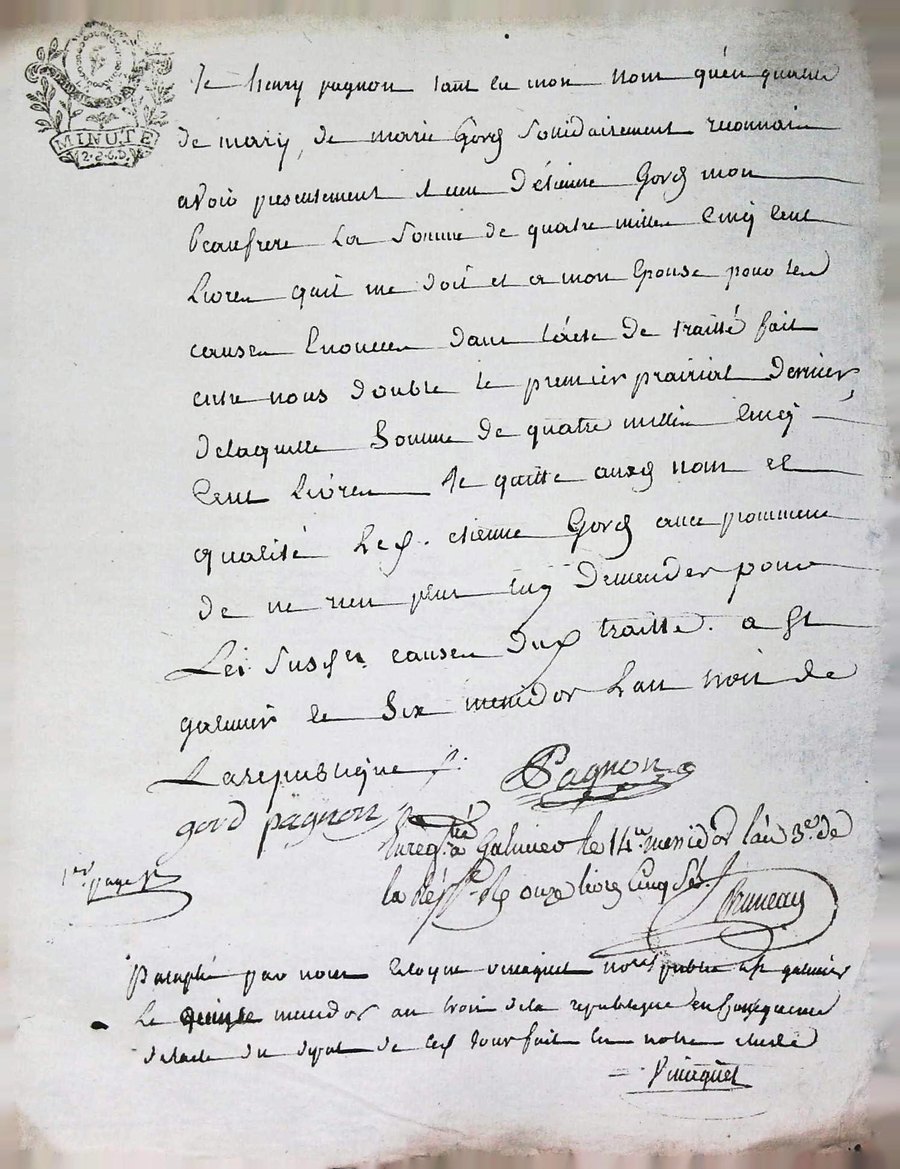 MINUTE
2.S.6.D.
Je henry pagnon tant en mon nom qu'en qualité
de mary, de marie Gord solidairement reconnait
avoir presentement reçu d'étienne Gord mon
beaufrere La Somme de quatre milles Cinq Cent
Livres quil me doit et a mon Epouse pour les
causes Enoncees dans l'acte de traitté fait
entre nous double le premier prairial dernier,
de laquelle Somme de quatre milles Cinq
Cent Livres Je quitte auxd nom et
qualité Led. etienne Gord avec promesse
de ne rien plus luy demender pour
Les susd. causes dud traitté. a St
galmier le Six messidor Lan trois de
La republique
Pagnon
gord pagnon
Enreg.tré à Galmier le 14.e messidor l'an 3.e de
la Rép. reçu onze livres Cinq Sols
Bruneau
1er page
Paraphé par nous vincquet no.re public a galmier
Le quinze messidor an trois de la republique en Consequence
de lacte du depot de Ced Jour fait en notre etude
Vincquet